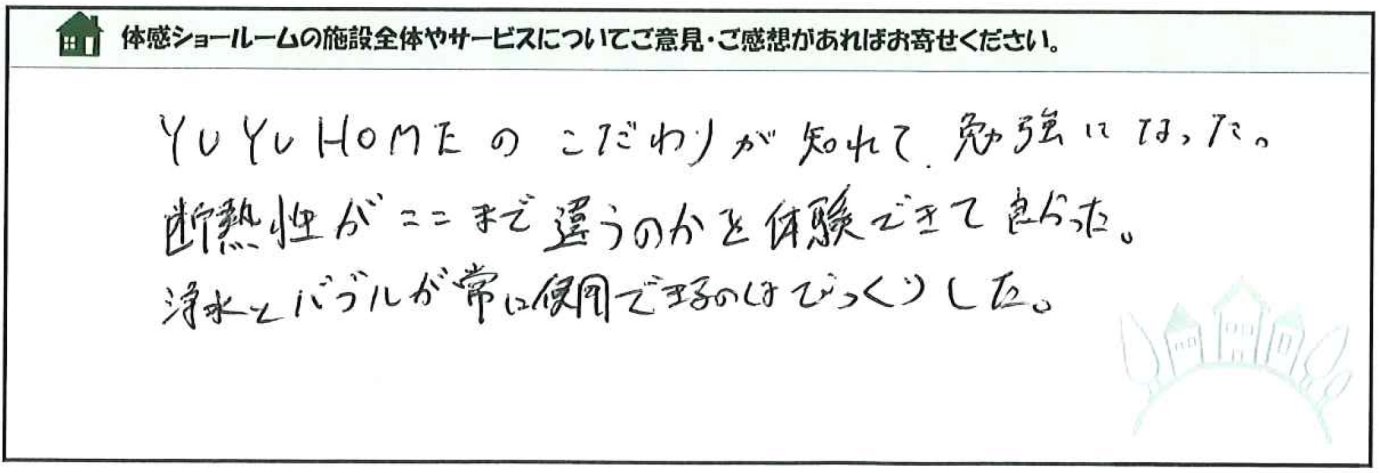 体感ショールームの施設全体やサービスについてご意見・ご感想があればお寄せください。
YUYUHOMEのこだわりが知れて、勉強になった。
断熱性がここまで違うのかを体験できて良かった。
浄水とバブルが常に使用できるのはびっくりした。